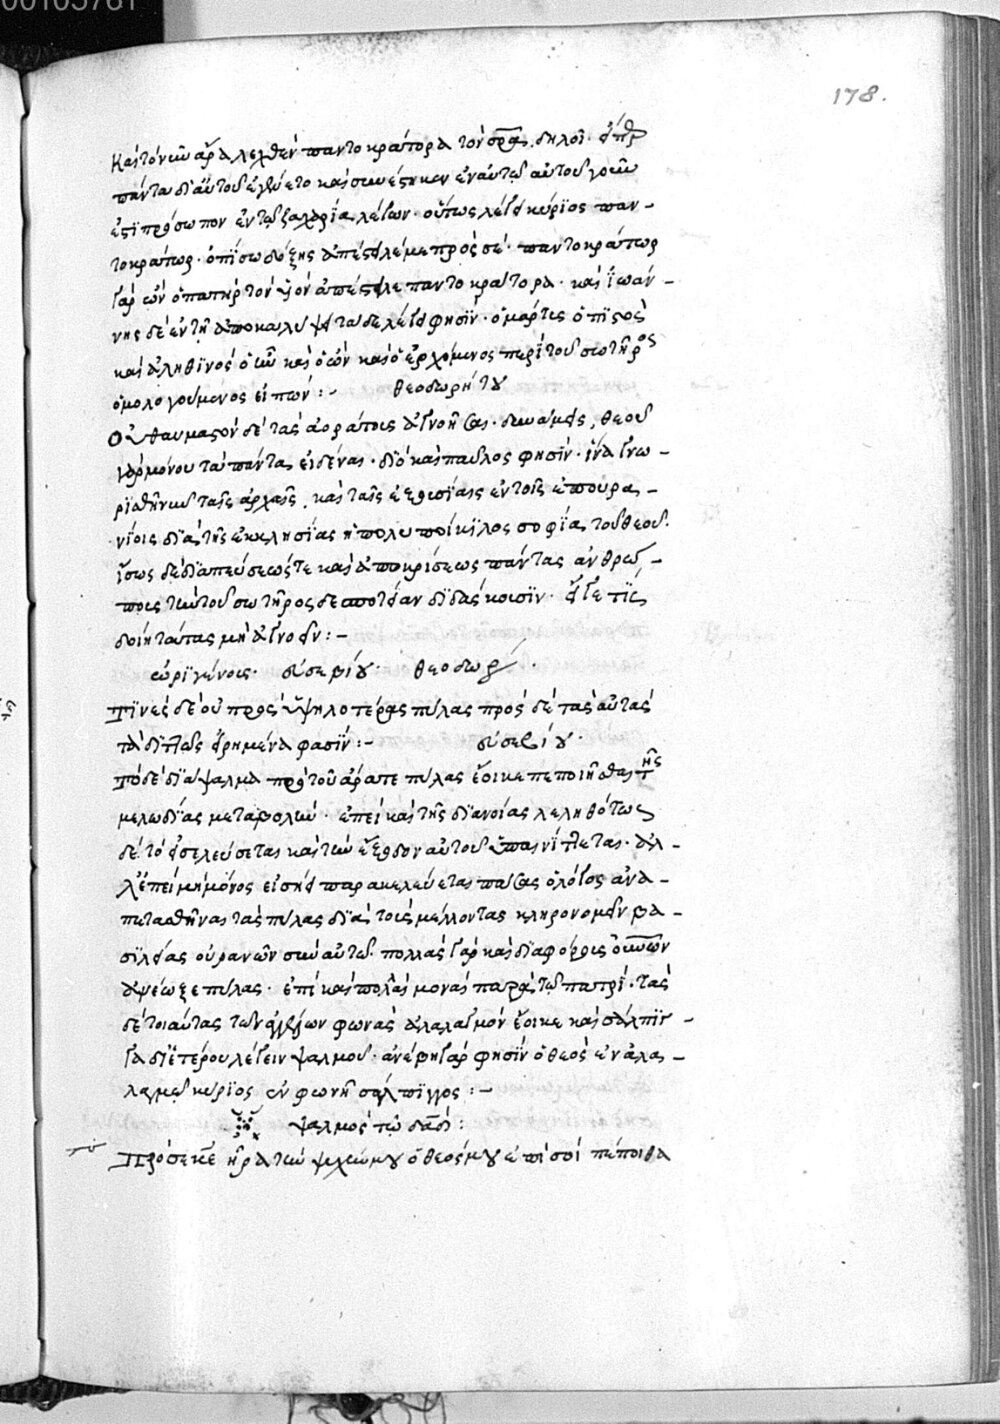 00105781
178.
καὶ τὸ νῦν ἄρα λεχθὲν παντοκράτορα τὸν σρα δηλοῖ· εἴπερ
πάντα δι' αὐτοῦ ἐγένετο καὶ συνέστηκεν ἐν αὐτῷ αὐτοῦ γοῦν
ἐστὶ πρόσωπον ἐν τῷ ζαχαρίᾳ λέγων· οὕτως λέγει κύριος παν-
τοκράτωρ· ὀπίσω δόξης ἀπέσταλέ με πρὸς σέ· παντοκράτωρ
γὰρ ὢν ὁ πατὴρ τὸν υἱὸν ἀπέστειλε παντοκράτορα· καὶ ἰωάν-
νης δὲ ἐν τῇ ἀποκαλύψει τάδε λέγει φησὶν· ὁ μάρτυς ὁ πιστὸς
καὶ ἀληθινός ὁ ὢν καὶ ὁ ἦν καὶ ὁ ἐρχόμενος περὶ τοῦ σωτῆρος
ὁμολογουμένως εἰπών:- θεοδωρήτου
Οὐ θαυμαστὸν δὲ τὰς ἀοράτους ἀγνοῆσαι δυνάμεις, θεοῦ
γὰρ μόνου τὸ πάντα εἰδέναι· διὸ καὶ παῦλος φησίν· ἵνα γνω-
ρισθῇ νῦν ταῖς ἀρχαῖς καὶ ταῖς ἐξουσίαις ἐν τοῖς ἐπουρα-
νίοις διὰ τῆς ἐκκλησίας ἡ πολυποίκιλος σοφία τοῦ θεοῦ.
ἴσως δὲ διὰ πεύσεώς τε καὶ ἀποκρίσεως πάντας ἀνθρώ-
πους τὴν τοῦ σωτῆρος δεσποτείαν διδάσκουσιν· εἴγε τις
δοίη ταύτας μὴ ἀγνοεῖν:-
ὠριγένους· εὐσεβίου· θεοδωρ
Τινὲς δὲ οὐ πρὸς ὑψηλοτέρας πύλας πρὸς δὲ τὰς αὐτὰς
τὰ διπλῶς εἰρημένα φασίν:- εὐσεβίου·
Τὸ δὲ διάψαλμα πρὸ τοῦ ἄρατε πύλας ἔοικε πεποιῆσθαι τῆς
μελωδίας μεταβολὴν· ἐπεὶ καὶ τῆς διανοίας λεληθότως
δὲ τὸ εἰσελεύσεται καὶ τὴν ἔξοδον αὐτοῦ ὑπαινίττεται· ἀλ-
λ' ἐπεὶ μὴ μόνος εἰσῄει παρακελεύεται πάσας ὁ λόγος ἀνα-
πετασθῆναι τὰς πύλας διὰ τοὺς μέλλοντας κληρονομεῖν βα-
σιλείας οὐρανῶν σὺν αὐτῷ· πολλὰς γὰρ καὶ διαφόρους
ἀνέῳξε πύλας· ἐπεὶ καὶ πολλαὶ μοναὶ παρὰ τῷ πατρί· τὰς
δὲ τοιαύτας τῶν ἀγγέλων φωνὰς ἀλαλαγμὸν ἔοικε καὶ σάλπιγ-
γα δι' ἑτέρου λέγειν ψαλμοῦ· ἀνέβη γὰρ φησὶν ὁ θεὸς ἐν ἀλα-
λαγμῷ κύριος ἐν φωνῇ σάλπιγγος:-
ψαλμὸς τῷ δαδ:
Πρὸς σὲ κε ἦρα τὴν ψυχήν μου ὁ θεός μου ἐπὶ σοὶ πέποιθα